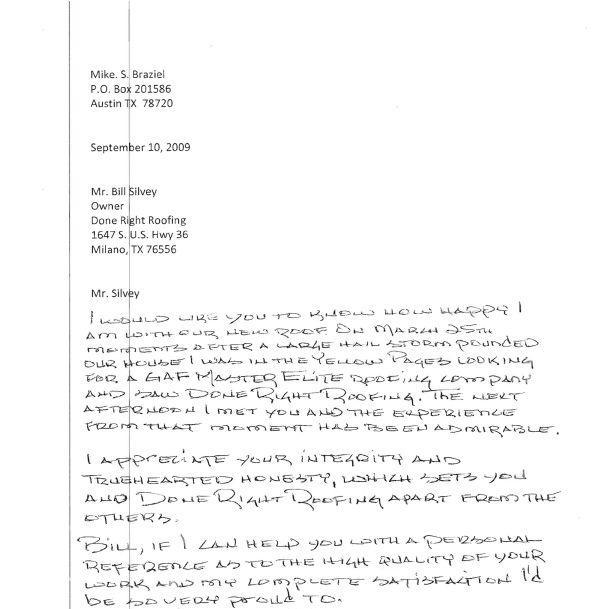 Mike. S. Braziel
P.O. Box 201586
Austin TX 78720
September 10, 2009
Mr. Bill Silvey
Owner
Done Right Roofing
1647 S. U.S. Hwy 36
Milano, TX 76556
Mr. Silvey
I WOULD LIKE YOU TO KNOW HOW HAPPY I
AM WITH OUR NEW ROOF ON MARCH 25TH
MOMENTS AFTER A LARGE HAIL STORM POUNDED
OUR HOUSE I WAS IN THE YELLOW PAGES LOOKING
FOR A GAF MASTER ELITE ROOFING COMPANY
AND SAW DONE RIGHT ROOFING. THE NEXT
AFTERNOON I MET YOU AND THE EXPERIENCE
FROM THAT MOMENT HAS BEEN ADMIRABLE.
I APPRECIATE YOUR INTEGRITY AND
TRUEHEARTED HONESTY, WHICH SETS YOU
AND DONE RIGHT ROOFING APART FROM THE
OTHERS.
BILL, IF I CAN HELP YOU WITH A PERSONAL
REFERENCE AS TO THE HIGH QUALITY OF YOUR
WORK AND MY COMPLETE SATISFACTION I'd
be SO VERY PROUD TO.